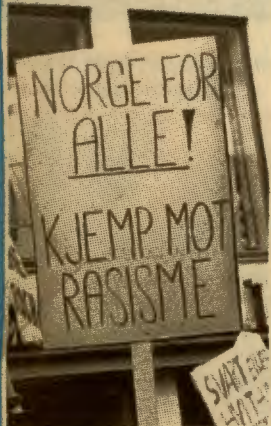 NORGE FOR
ALLE!
KJEMP MOT
RASISME